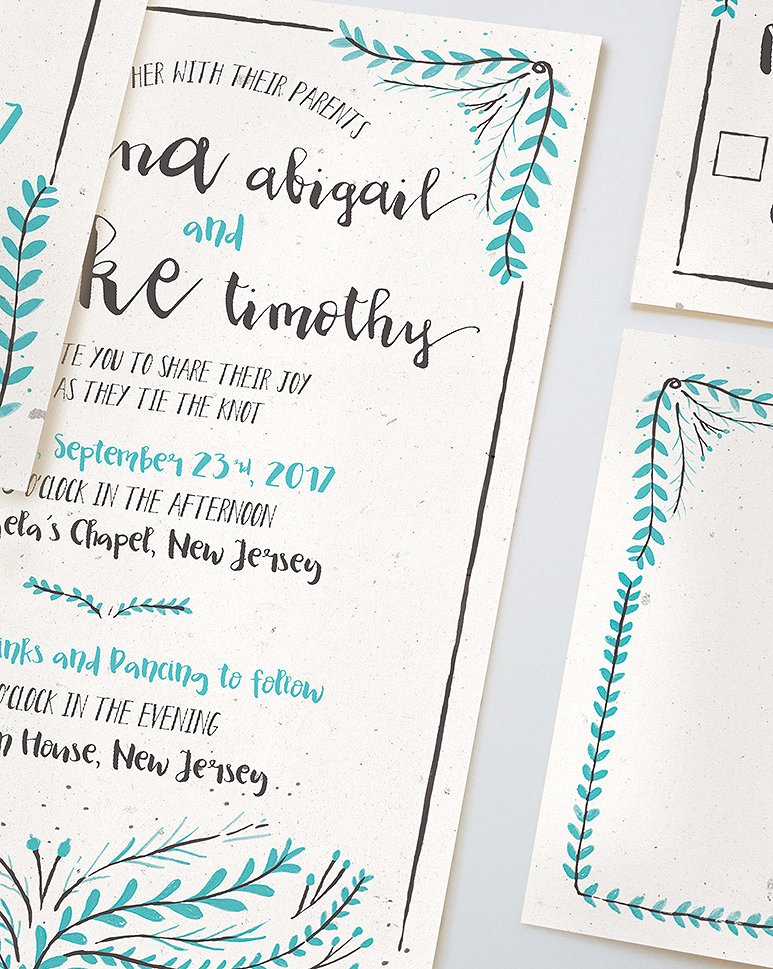 HER WITH THEIR PARENTS
na abigail
and
ke timothy
TE YOU TO SHARE THEIR JOY
AS THEY TIE THE KNOT
September 23rd, 2017
O'CLOCK IN THE AFTERNOON
ela's Chapel, New Jersey
inks and Dancing to follow
O'CLOCK IN THE EVENING
n House, New Jersey